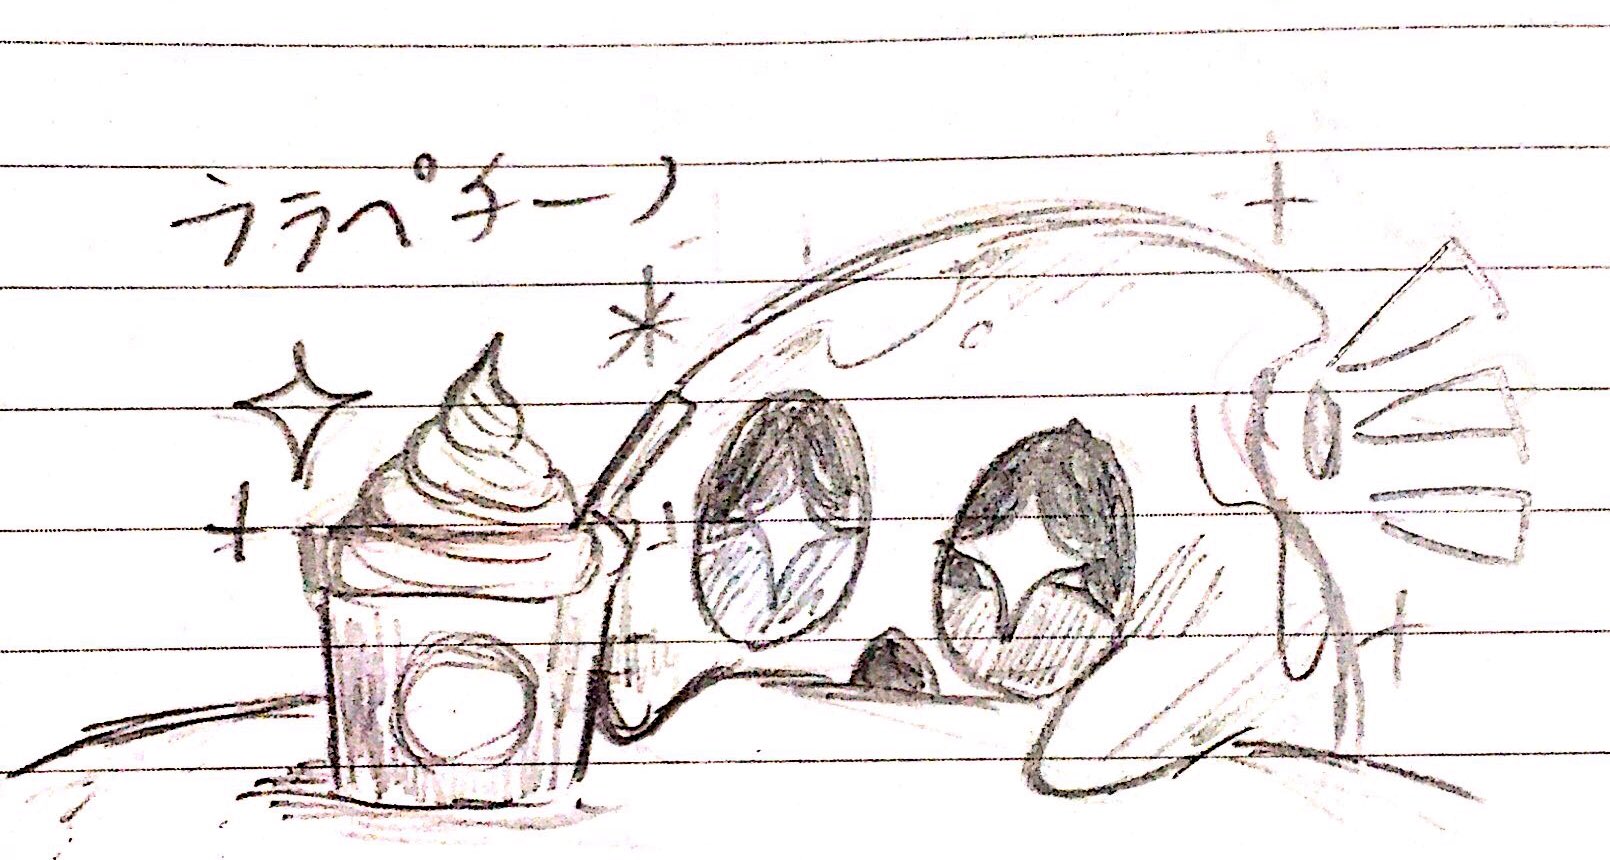 ララペチーノ